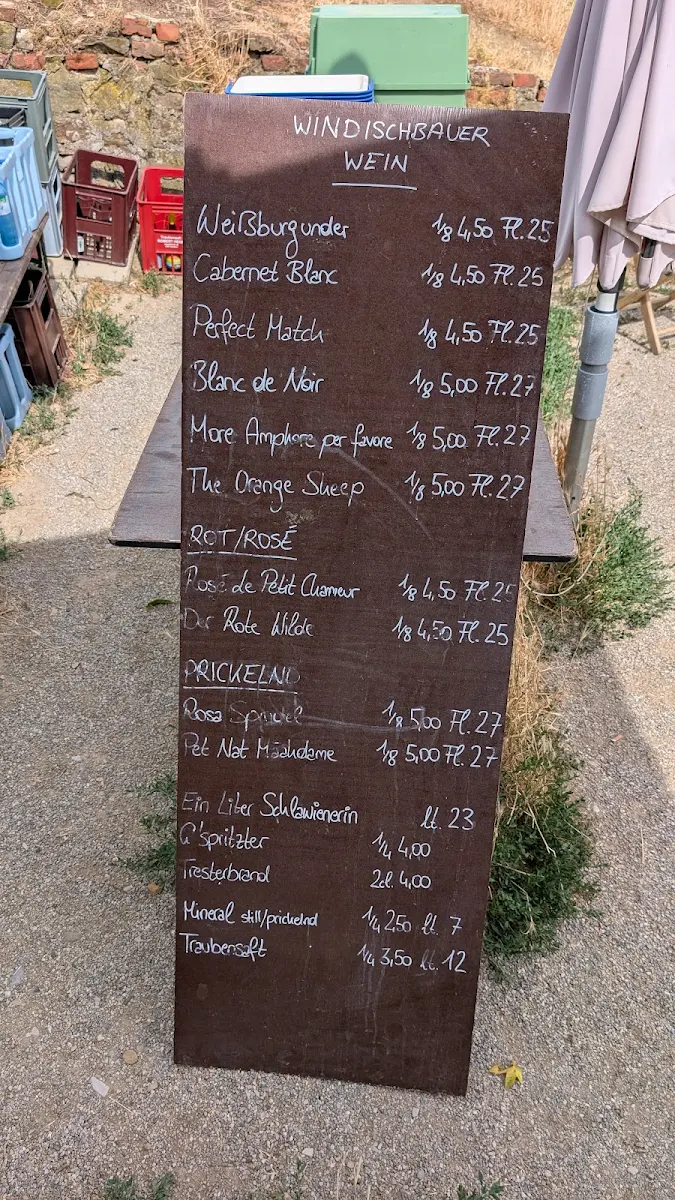 WINDISCHBAUER
WEIN
Weißburgunder 1/8 4,50 Fl. 25
Cabernet Blanc 1/8 4,50 Fl. 25
Perfect Match 1/8 4,50 Fl. 25
Blanc de Noir 1/8 5,00 Fl. 27
More Amphore per favore 1/8 5,00 Fl. 27
The Orange Sheep 1/8 5,00 Fl. 27
ROT/ROSÉ
Rosé de Petit Chameur 1/8 4,50 Fl. 25
Der Rote Wilde 1/8 4,50 Fl. 25
PRICKELND
Rosa Sprudel 1/8 5,00 Fl. 27
Pet Nat Määhdame 1/8 5,00 Fl. 27
Ein Liter Schlawienerin lt. 23
G'spritzter 1/4 4,00
Tresterbrand 2cl. 4,00
Mineral still/prickelnd 1/4 2,50 lt. 7
Traubensaft 1/4 3,50 lt. 12